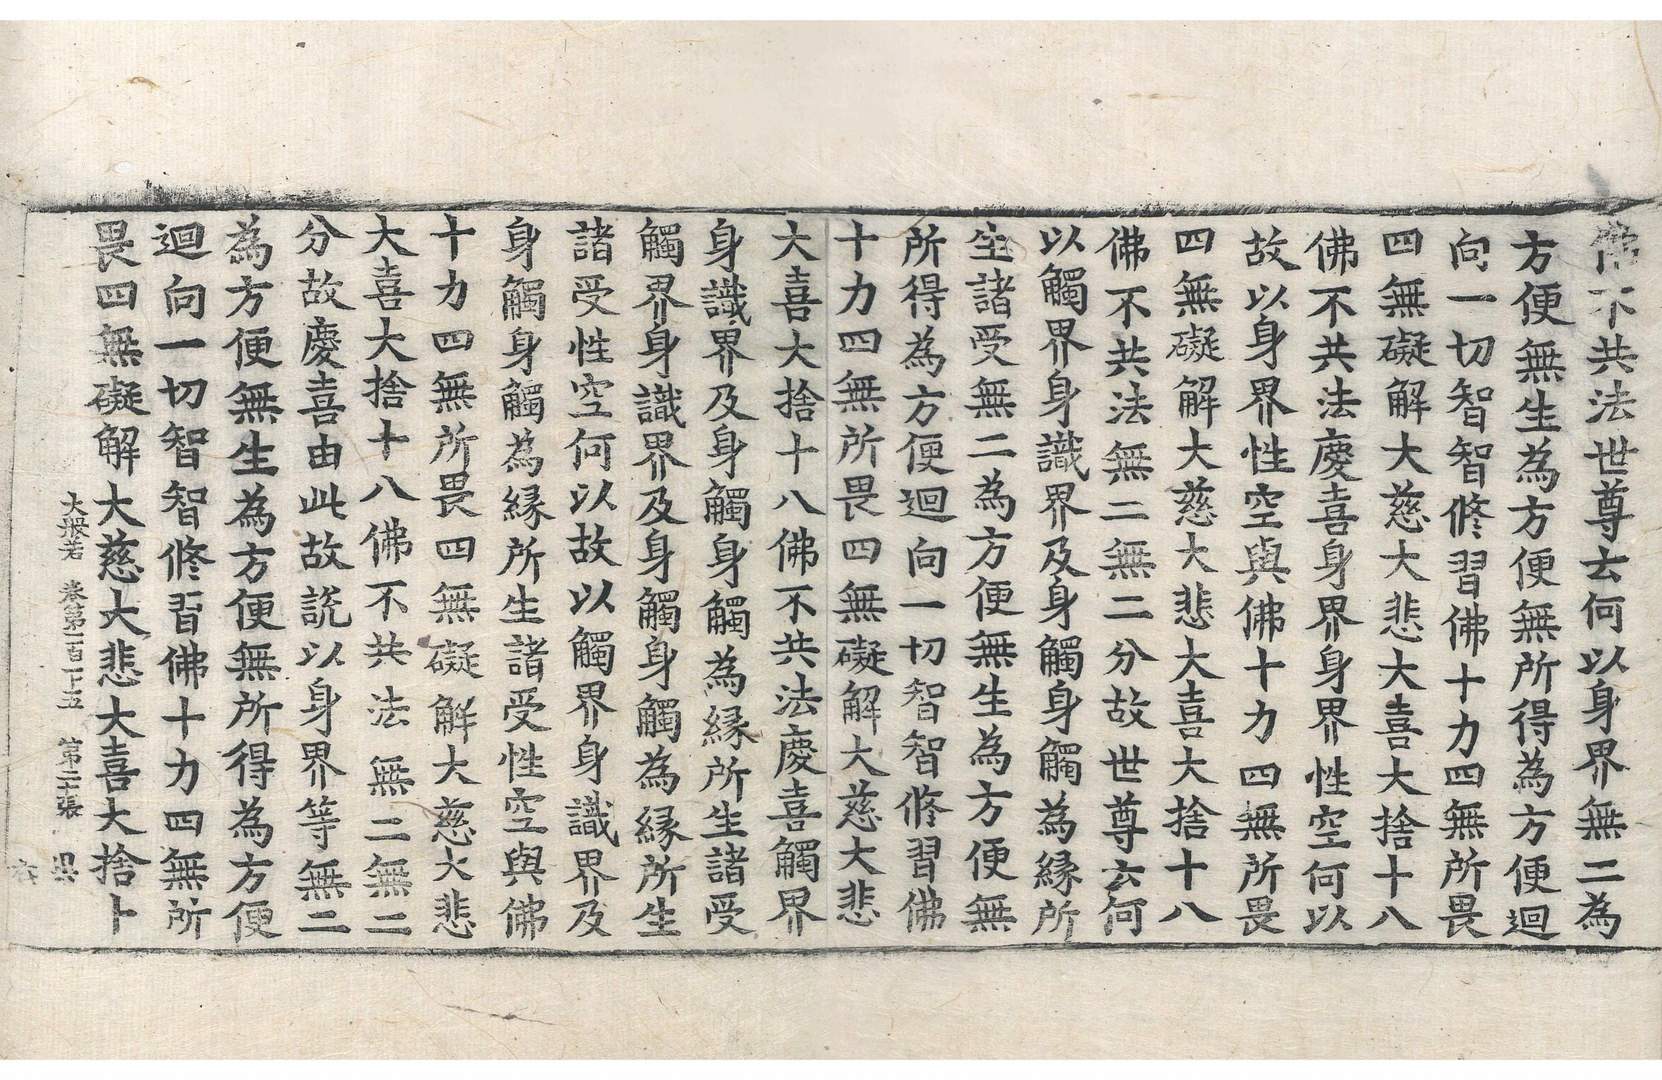 佛不共法世尊云何以身界無二為
方便無生為方便無所得為方便迴
向一切智智修習佛十力四無所畏
四無礙解大慈大悲大喜大捨十八
佛不共法慶喜身界身界性空何以
故以身界性空與佛十力四無所畏
四無礙解大慈大悲大喜大捨十八
佛不共法無二無二分故世尊云何
以觸界身識界及身觸身觸為緣所
生諸受無二為方便無生為方便無
所得為方便迴向一切智智修習佛
十力四無所畏四無礙解大慈大悲
大喜大捨十八佛不共法慶喜觸界
身識界及身觸身觸為緣所生諸受
觸界身識界及身觸身觸為緣所生
諸受性空何以故以觸界身識界及
身觸身觸為緣所生諸受性空與佛
十力四無所畏四無礙解大慈大悲
大喜大捨十八佛不共法無二無二
分故慶喜由此故說以身界等無二
為方便無生為方便無所得為方便
迴向一切智智修習佛十力四無所
畏四無礙解大慈大悲大喜大捨十
大般若 卷第一百一十五 第二十張